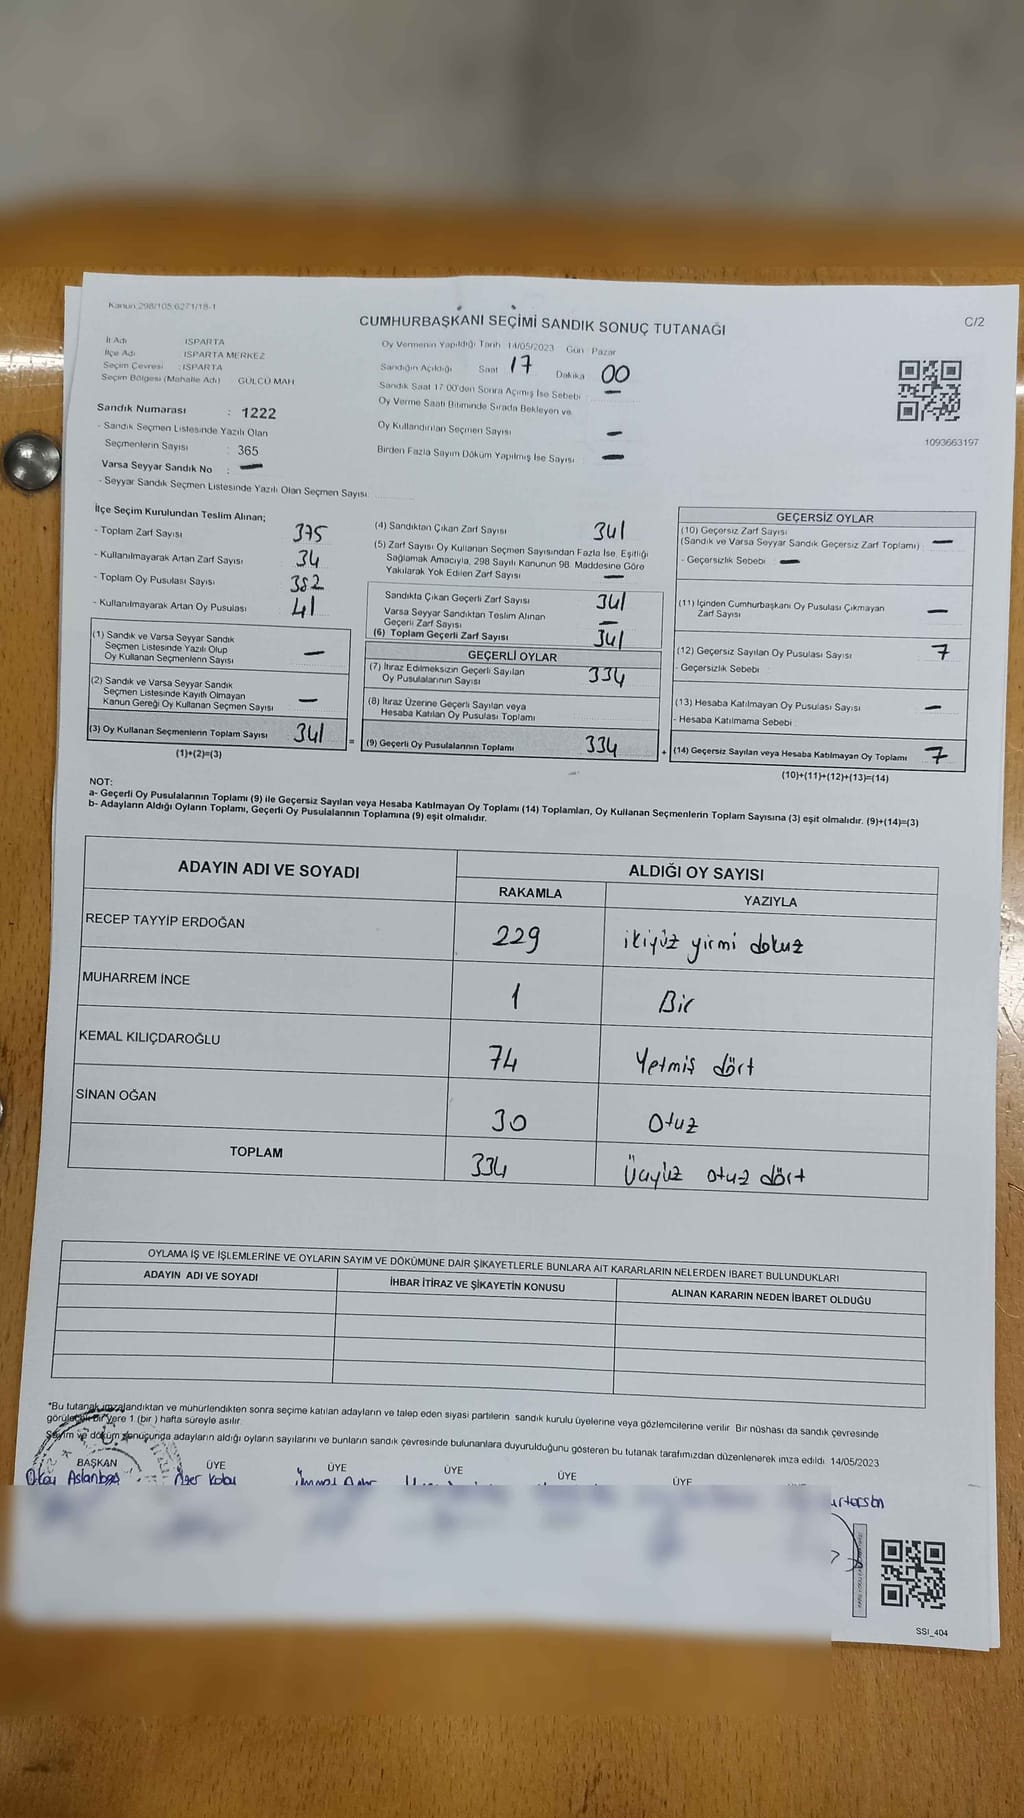 Kanun 298/105,6271/18-1
CUMHURBAŞKANI SEÇİMİ SANDIK SONUÇ TUTANAĞI
C/2
İl Adı ISPARTA
İlçe Adı ISPARTA MERKEZ
Seçim Çevresi : ISPARTA
Seçim Bölgesi (Mahalle Adı) GÜLCÜ MAH
Sandık Numarası : 1222
- Sandık Seçmen Listesinde Yazılı Olan
Seçmenlerin Sayısı : 365
Varsa Seyyar Sandık No : —
- Seyyar Sandık Seçmen Listesinde Yazılı Olan Seçmen Sayısı
Oy Vermenin Yapıldığı Tarih 14/05/2023 Gün Pazar
Sandığın Açıldığı Saat 17 Dakika 00
Sandık Saat 17 00'den Sonra Açımış İse Sebebi : —
Oy Verme Saati Bitiminde Sırada Bekleyen ve
Oy Kullandırılan Seçmen Sayısı —
Birden Fazla Sayım Döküm Yapılmış İse Sayısı —
1093663197
İlçe Seçim Kurulundan Teslim Alınan;
- Toplam Zarf Sayısı 375
- Kullanılmayarak Artan Zarf Sayısı 34
- Toplam Oy Pusulası Sayısı 382
- Kullanılmayarak Artan Oy Pusulası 41
(1) Sandık ve Varsa Seyyar Sandık
Seçmen Listesinde Yazılı Olup
Oy Kullanan Seçmenlerin Sayısı —
(2) Sandık ve Varsa Seyyar Sandık
Seçmen Listesinde Kayıtlı Olmayan
Kanun Gereği Oy Kullanan Seçmen Sayısı —
(3) Oy Kullanan Seçmenlerin Toplam Sayısı 341
(1)+(2)=(3)
(4) Sandıktan Çıkan Zarf Sayısı 341
(5) Zarf Sayısı Oy Kullanan Seçmen Sayısından Fazla İse, Eşitliği
Sağlamak Amacıyla, 298 Sayılı Kanunun 98. Maddesine Göre
Yakılarak Yok Edilen Zarf Sayısı —
Sandıkta Çıkan Geçerli Zarf Sayısı 341
Varsa Seyyar Sandıktan Teslim Alınan
Geçerli Zarf Sayısı —
(6) Toplam Geçerli Zarf Sayısı 341
GEÇERLİ OYLAR
(7) İtiraz Edilmeksizin Geçerli Sayılan
Oy Pusulalarının Sayısı 334
(8) İtiraz Üzerine Geçerli Sayılan veya
Hesaba Katılan Oy Pusulası Toplamı
= (9) Geçerli Oy Pusulalarının Toplamı 334
GEÇERSİZ OYLAR
(10) Geçersiz Zarf Sayısı
(Sandık ve Varsa Seyyar Sandık Geçersiz Zarf Toplamı) —
- Geçersizlik Sebebi : —
(11) İçinden Cumhurbaşkanı Oy Pusulası Çıkmayan
Zarf Sayısı —
(12) Geçersiz Sayılan Oy Pusulası Sayısı 7
- Geçersizlik Sebebi :
(13) Hesaba Katılmayan Oy Pusulası Sayısı —
- Hesaba Katılmama Sebebi :
+ (14) Geçersiz Sayılan veya Hesaba Katılmayan Oy Toplamı 7
(10)+(11)+(12)+(13)=(14)
NOT:
a- Geçerli Oy Pusulalarının Toplamı (9) ile Geçersiz Sayılan veya Hesaba Katılmayan Oy Toplamı (14) Toplamları, Oy Kullanan Seçmenlerin Toplam Sayısına (3) eşit olmalıdır. (9)+(14)=(3)
b- Adayların Aldığı Oyların Toplamı, Geçerli Oy Pusulalarının Toplamına (9) eşit olmalıdır.
ADAYIN ADI VE SOYADI ALDIĞI OY SAYISI
RAKAMLA YAZIYLA
RECEP TAYYİP ERDOĞAN 229 ikiyüz yirmi dokuz
MUHARREM İNCE 1 Bir
KEMAL KILIÇDAROĞLU 74 Yetmiş dört
SİNAN OĞAN 30 Otuz
TOPLAM 334 Üçyüz otuz dört
OYLAMA İŞ VE İŞLEMLERİNE VE OYLARIN SAYIM VE DÖKÜMÜNE DAİR ŞİKAYETLERLE BUNLARA AİT KARARLARIN NELERDEN İBARET BULUNDUKLARI
ADAYIN ADI VE SOYADI İHBAR İTİRAZ VE ŞİKAYETİN KONUSU ALINAN KARARIN NEDEN İBARET OLDUĞU
*Bu tutanak imzalandıktan ve mühürlendikten sonra seçime katılan adayların ve talep eden siyasi partilerin sandık kurulu üyelerine veya gözlemcilerine verilir Bir nüshası da sandık çevresinde
görülecek bir yere 1 (bir ) hafta süreyle asılır
Sayım ve döküm sonuçunda adayların aldığı oyların sayılarını ve bunların sandık çevresinde bulunanlara duyurulduğunu gösteren bu tutanak tarafımızdan düzenlenerek imza edildi 14/05/2023
BAŞKAN ÜYE ÜYE ÜYE ÜYE ÜYE
SSI_404